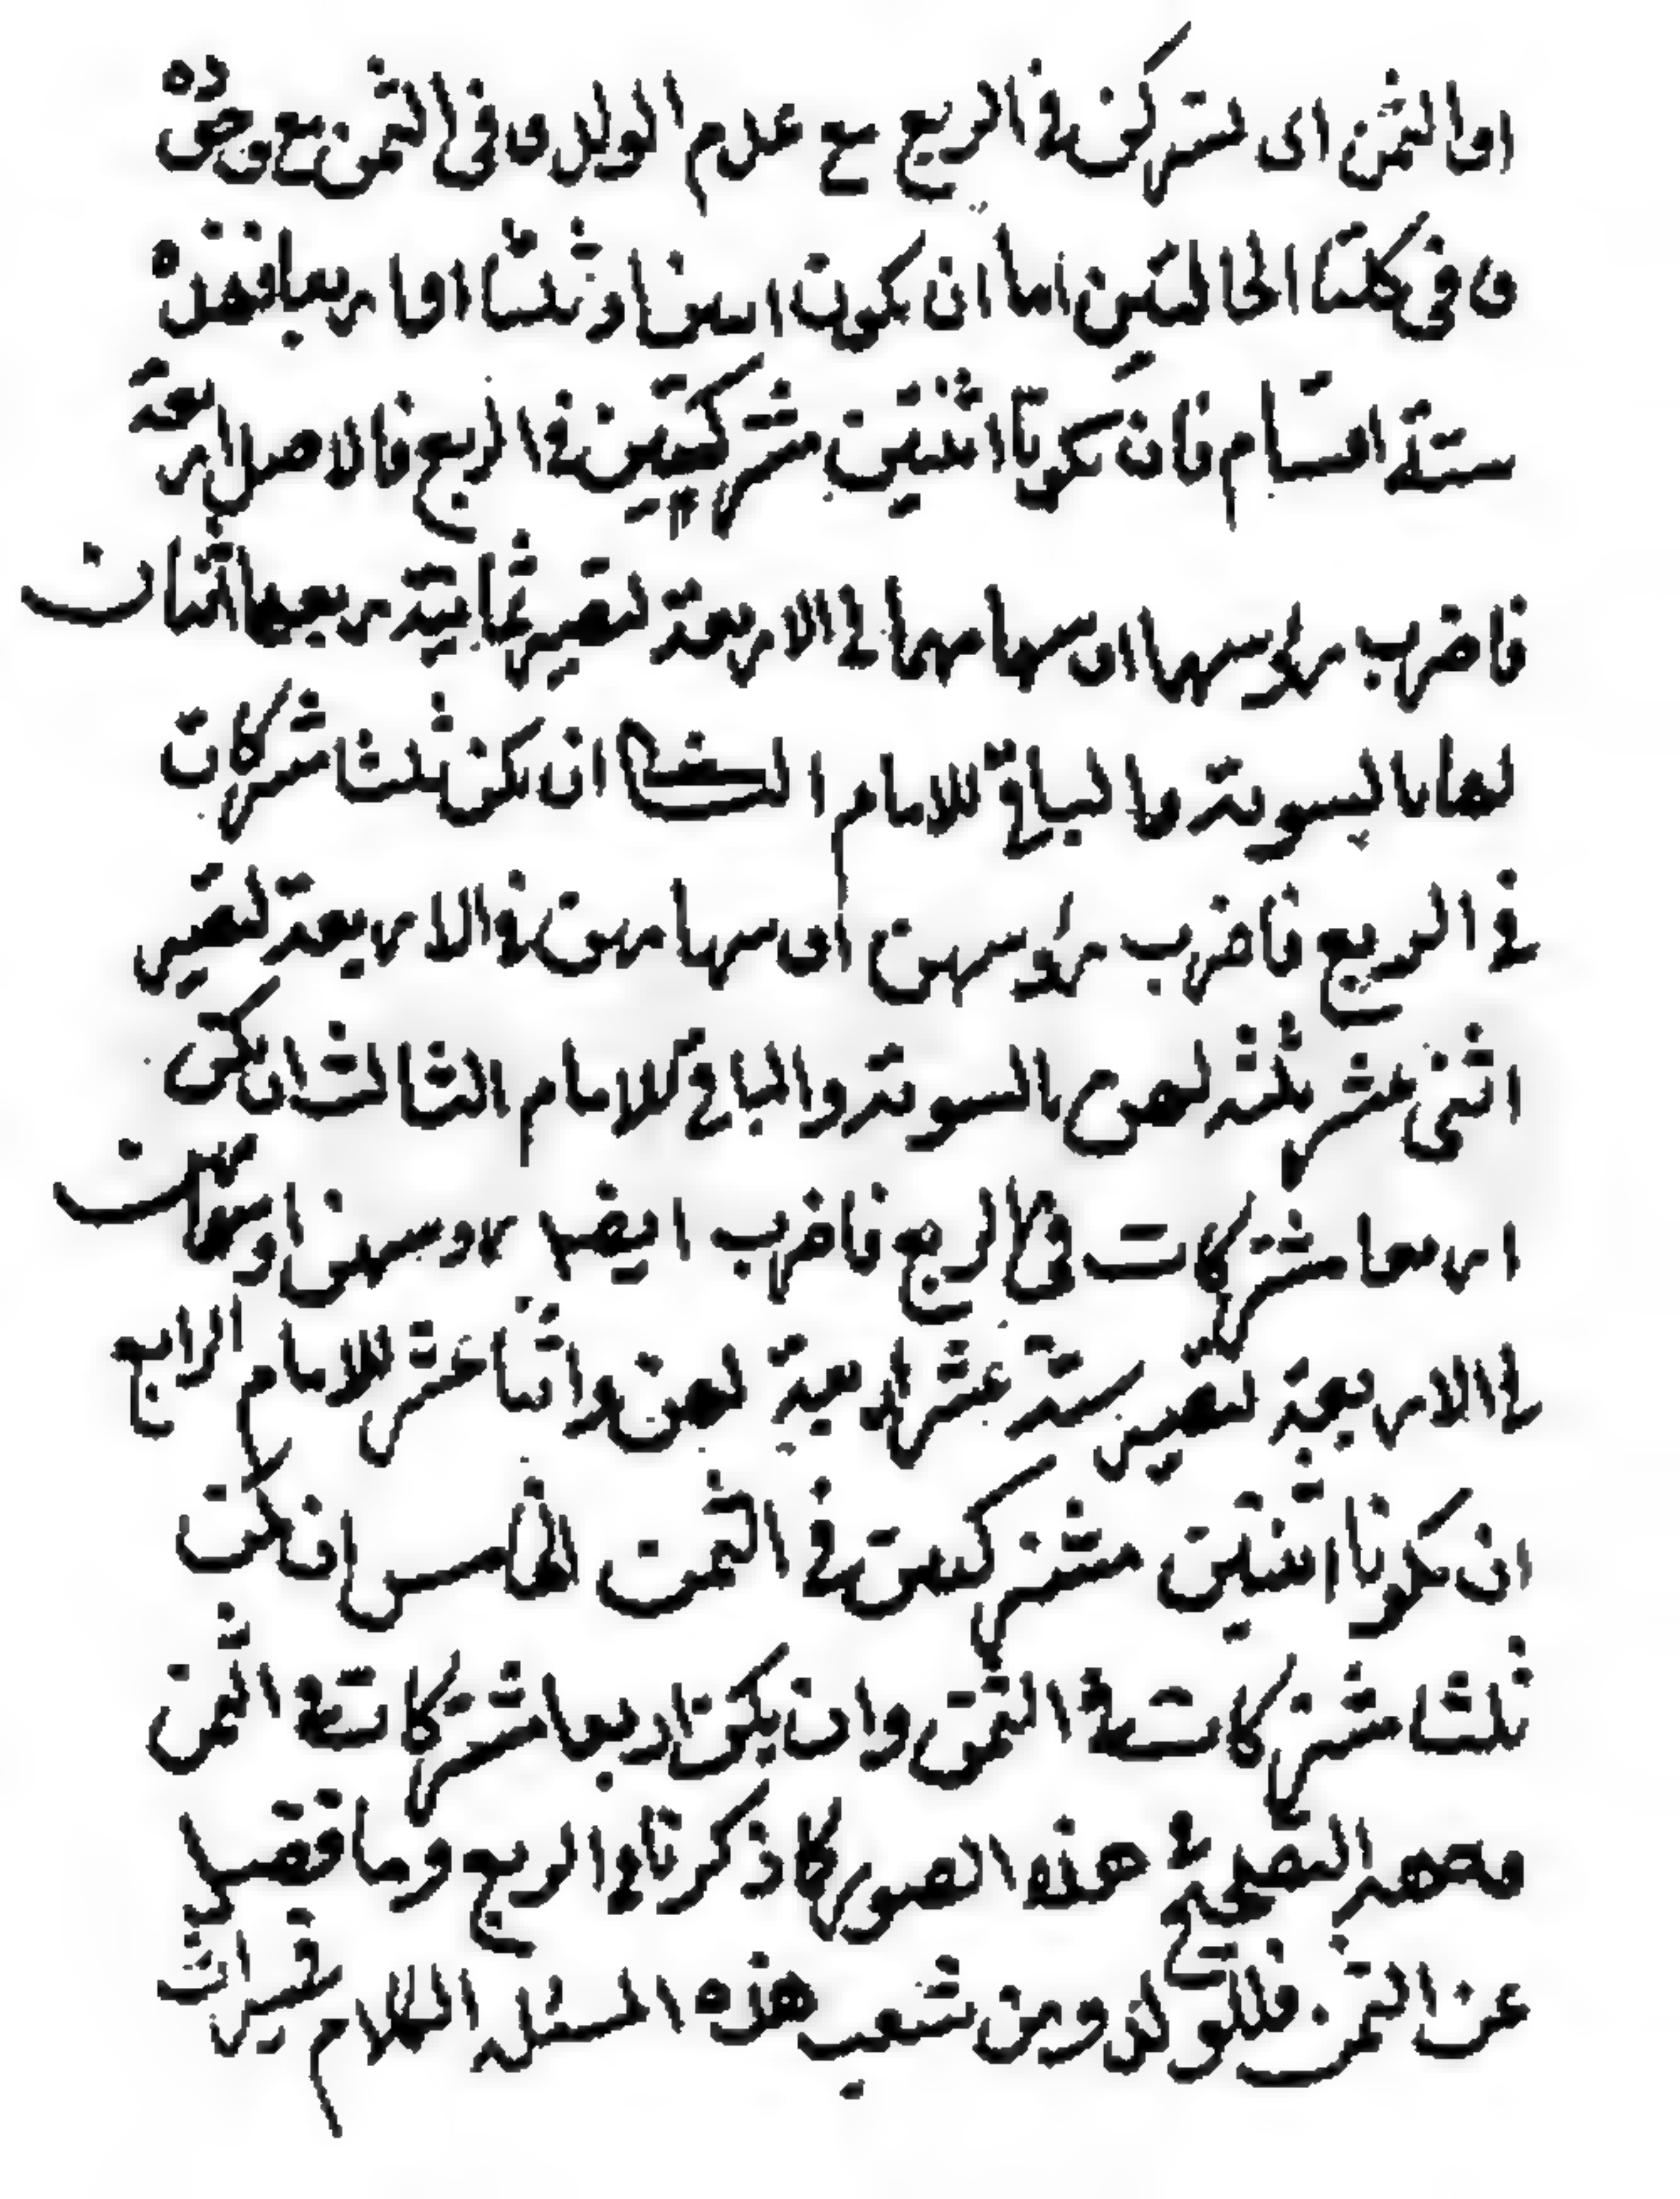 او الثمن اى تشتركن فى الربع مع عدم الولد و فى الثمن مع وجوده
و فى كلتا الحالتين اما ان يكون اثنتين او ثلثا او اربعا فهذه
ستة اقسام فان تكونا اثنتين مشتركتين فى الربع فالاصل اربعة
فاضرب رؤسهما اى سهامهما فى الاربعة تصير ثمانية ربعها اثنان
لهما بالسوية والباقى للامام الثانى ان يكن ثلثا مشتركات
فى الربع فاضرب رؤسهن اى سهامهن فى الاربعة تصير
اثنى عشر ثلثة لهن بالسوية والباقى للامام الثالث ان يكن
اربعا مشتركات فى الربع فاضرب ايضا رؤسهن او سهامهن
فى الاربعة تصير ستة عشر اربعة لهن واثنا عشر للامام الرابع
ان تكونا اثنتين مشتركتين فى الثمن الخامس ان يكن
ثلثا مشتركات فى الثمن وان يكن اربعا مشتركات فى الثمن
التصحيح فى هذه الصور كما ذكرنا فى الربع وما فضل
عن الثمن فللولد ومن شعب هذه المسئلة الكلام فى ميراث